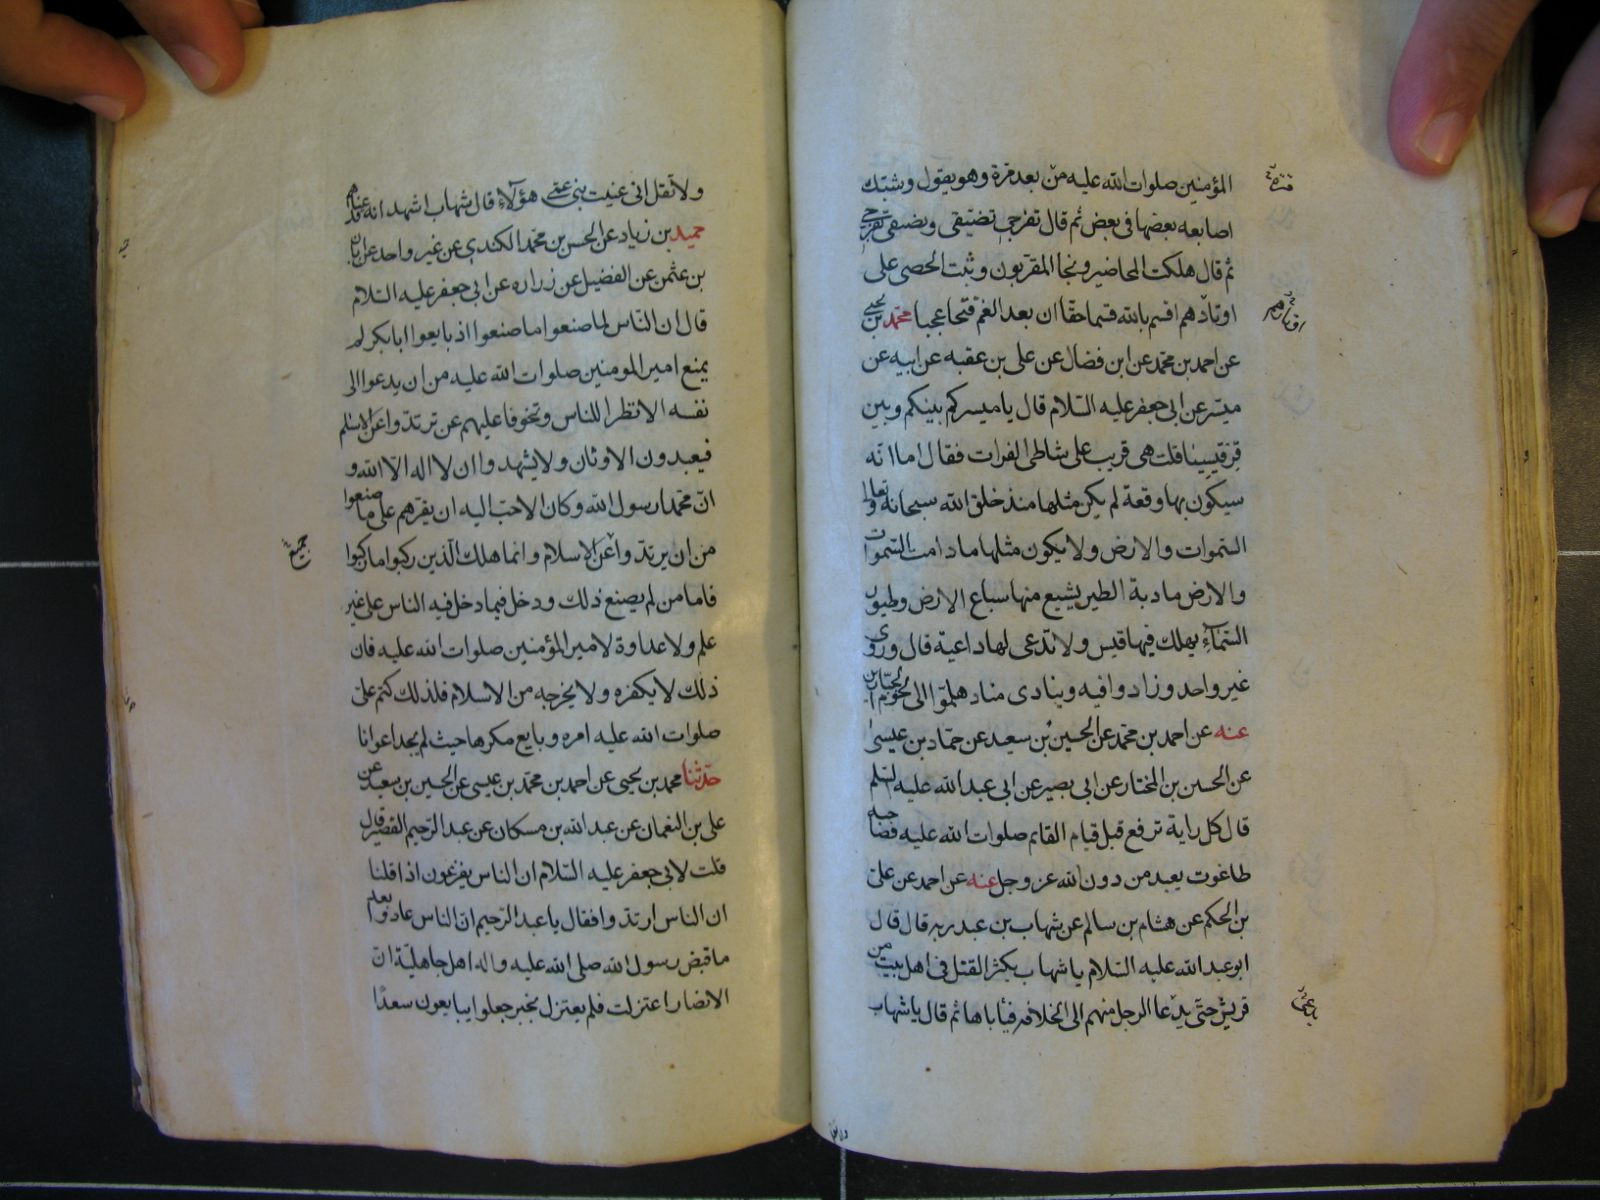 المؤمنين صلوات الله عليه من بعد مرة وهو يقول وشبك
اصابعه بعضها فى بعض ثم قال تفرجى تضيقى وتضيقى تفرجى
ثم قال هلكت المحاضير ونجا المقربون وثبت الحصى على
اوتادهم اقسم بالله قسما حقا ان بعد الغم فتحا عجبا محمد بن يحيى
عن احمد بن محمد عن ابن فضال عن على بن عقبه عن ابيه عن
ميسر عن ابى جعفر عليه السلام قال يا ميسر كم بينكم وبين
قرقيسا قلت هى قريب على شاطى الفرات فقال اما انه
سيكون بها وقعة لم يكن مثلها منذ خلق الله سبحانه وتعالى
السموات والارض ولا يكون مثلها ما دامت السموات
والارض مادبة الطير يشبع منها سباع الارض وطيور
السماء يهلك فيها قيس ولا تدعى لها داعية قال وروى
غير واحد وزادوا فيه وينادى مناد هلموا الى لحوم الجبارين
عنه عن احمد بن محمد عن الحسين بن سعيد عن حماد بن عيسى
عن الحسين بن المختار عن ابى بصير عن ابى عبد الله عليه السلم
قال كل راية ترفع قبل قيام القائم صلوات الله عليه فصاحبه
طاغوت يعبد من دون الله عز وجل عنه عن احمد عن على
بن الحكم عن هشام بن سالم عن شهاب بن عبد ربه قال قال
ابو عبد الله عليه السلام يا شهاب يكثر القتل فى اهل بيت من
قريش حتى يدعا الرجل منهم الى الخلافه فيأباها ثم قال يا شهاب
ولا تقل انى عنيت بنى عمى هؤلاء قال شهاب اشهد انه قد عناهم
حميد بن زياد عن الحسن بن محمد الكندى عن غير واحد عن ابان
بن عثمن عن الفضيل عن زراره عن ابى جعفر عليه السلام
قال ان الناس لما صنعوا ما صنعوا اذ بايعوا ابا بكر لم
يمنع امير المومنين صلوات الله عليه من ان يدعوا الى
نفسه الا نظرا للناس وتخوفا عليهم عن ترتدوا عن الاسلم
فيعبدون الاوثان ولا يشهدوا ان لا اله الا الله و
ان محمدا رسول الله وكان الاحب اليه ان يقرهم على ما صنعوا
من ان يرتدوا عن الاسلام وانما هلك الذين ركبوا ما ركبوا
جميع
فاما من لم يصنع ذلك ودخل فيما دخل فيه الناس على غير
علم ولا عداوة لامير المؤمنين صلوات الله عليه فان
ذلك لا يكفره ولا يخرجه من الاسلام فلذلك كتم على
صلوات الله عليه امره وبايع مكرها حيث لم يجد اعوانا
حدثنا محمد بن يحيى عن احمد بن محمد بن عيسى عن الحسين بن سعيد عن
على بن النعمان عن عبد الله بن مسكان عن عبد الرحيم القصير قال
قلت لابى جعفر عليه السلام ان الناس يفزعون اذا قلنا
ان الناس ارتدوا فقال يا عبد الرحيم ان الناس عادوا بعد
ما قبض رسول الله صلى الله عليه واله اهل جاهلية ان
الانصار اعتزلت فلم يعتزل بخير جعلوا يبايعون سعدا